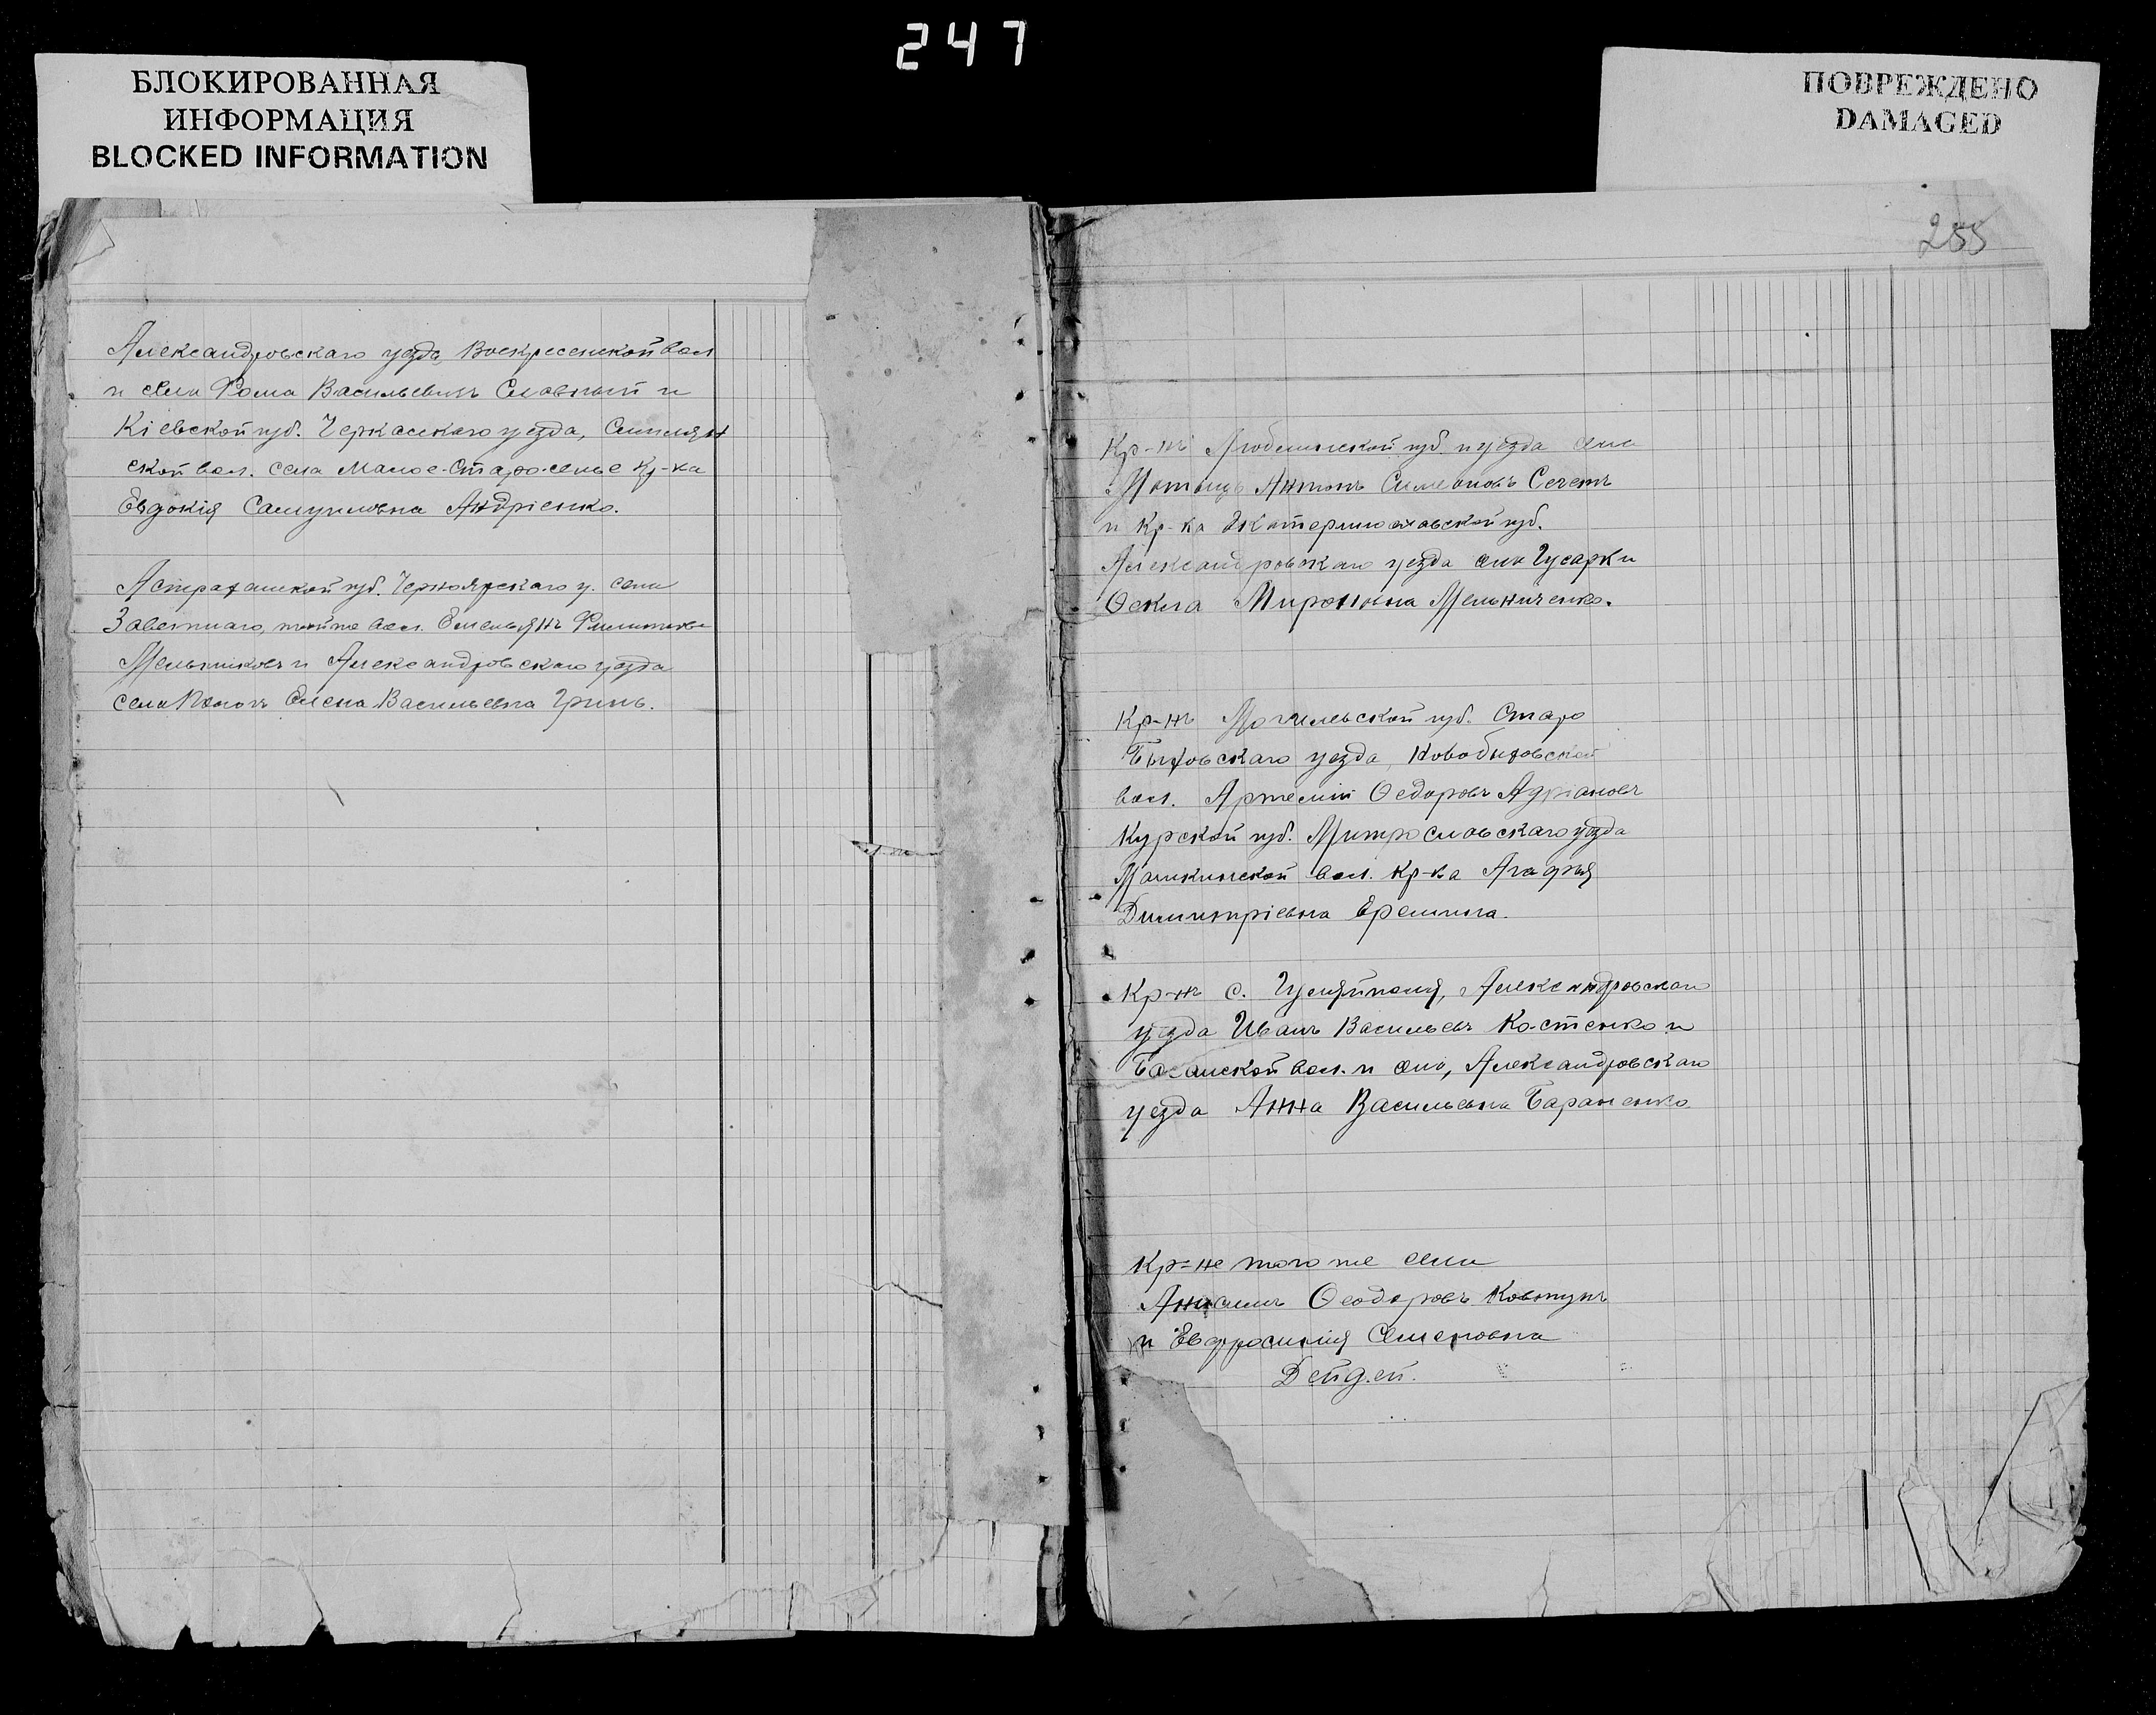 247
БЛОКИРОВАННАЯ
ИНФОРМАЦИЯ
BLOCKED INFORMATION
ПОВРЕЖДЕНО
DAMAGED
Александровскаго уезда, Воскресенской вол
и села Фома Васильевичъ Славный и
Кіевской губ. Черкасскаго уезда, Смилян
ской вол. села Малое-Старо-селье кр-ка
Евдокія Самуиловна Андріенко.
Астраханской губ. Черноярскаго у. села
Заветнаго, той же вол. Емельянъ Филиппов
Мельниковъ и Александровскаго уезда
села Елена Васильевна Гринь.
255
Кр-нъ Люблинской губ. и уезда села
Антонъ Симеоновъ Сечетъ
и Кр-ка Екатеринославской губ.
Александровскаго уезда села Гусарки
Ѳекла Мироновна Мельниченко.
Кр-нъ Могилевской губ. Старо
Быховскаго уезда, Новобыховской
вол. Артемій Ѳедоровъ Адріановъ
Курской губ. Уезда
вол. Кр-ка Агафья
Димитріевна Еремина.
Кр-нъ с. Гуляйполя, Александровскаго
уезда Иванъ Васильевъ Костенко и
вол. и села, Александровскаго
уезда Анна Васильевна Бараненко
Кр=не того же села
Ѳеодоровъ Ковтунъ
и Евфросинія Семеновна
Дейдей.